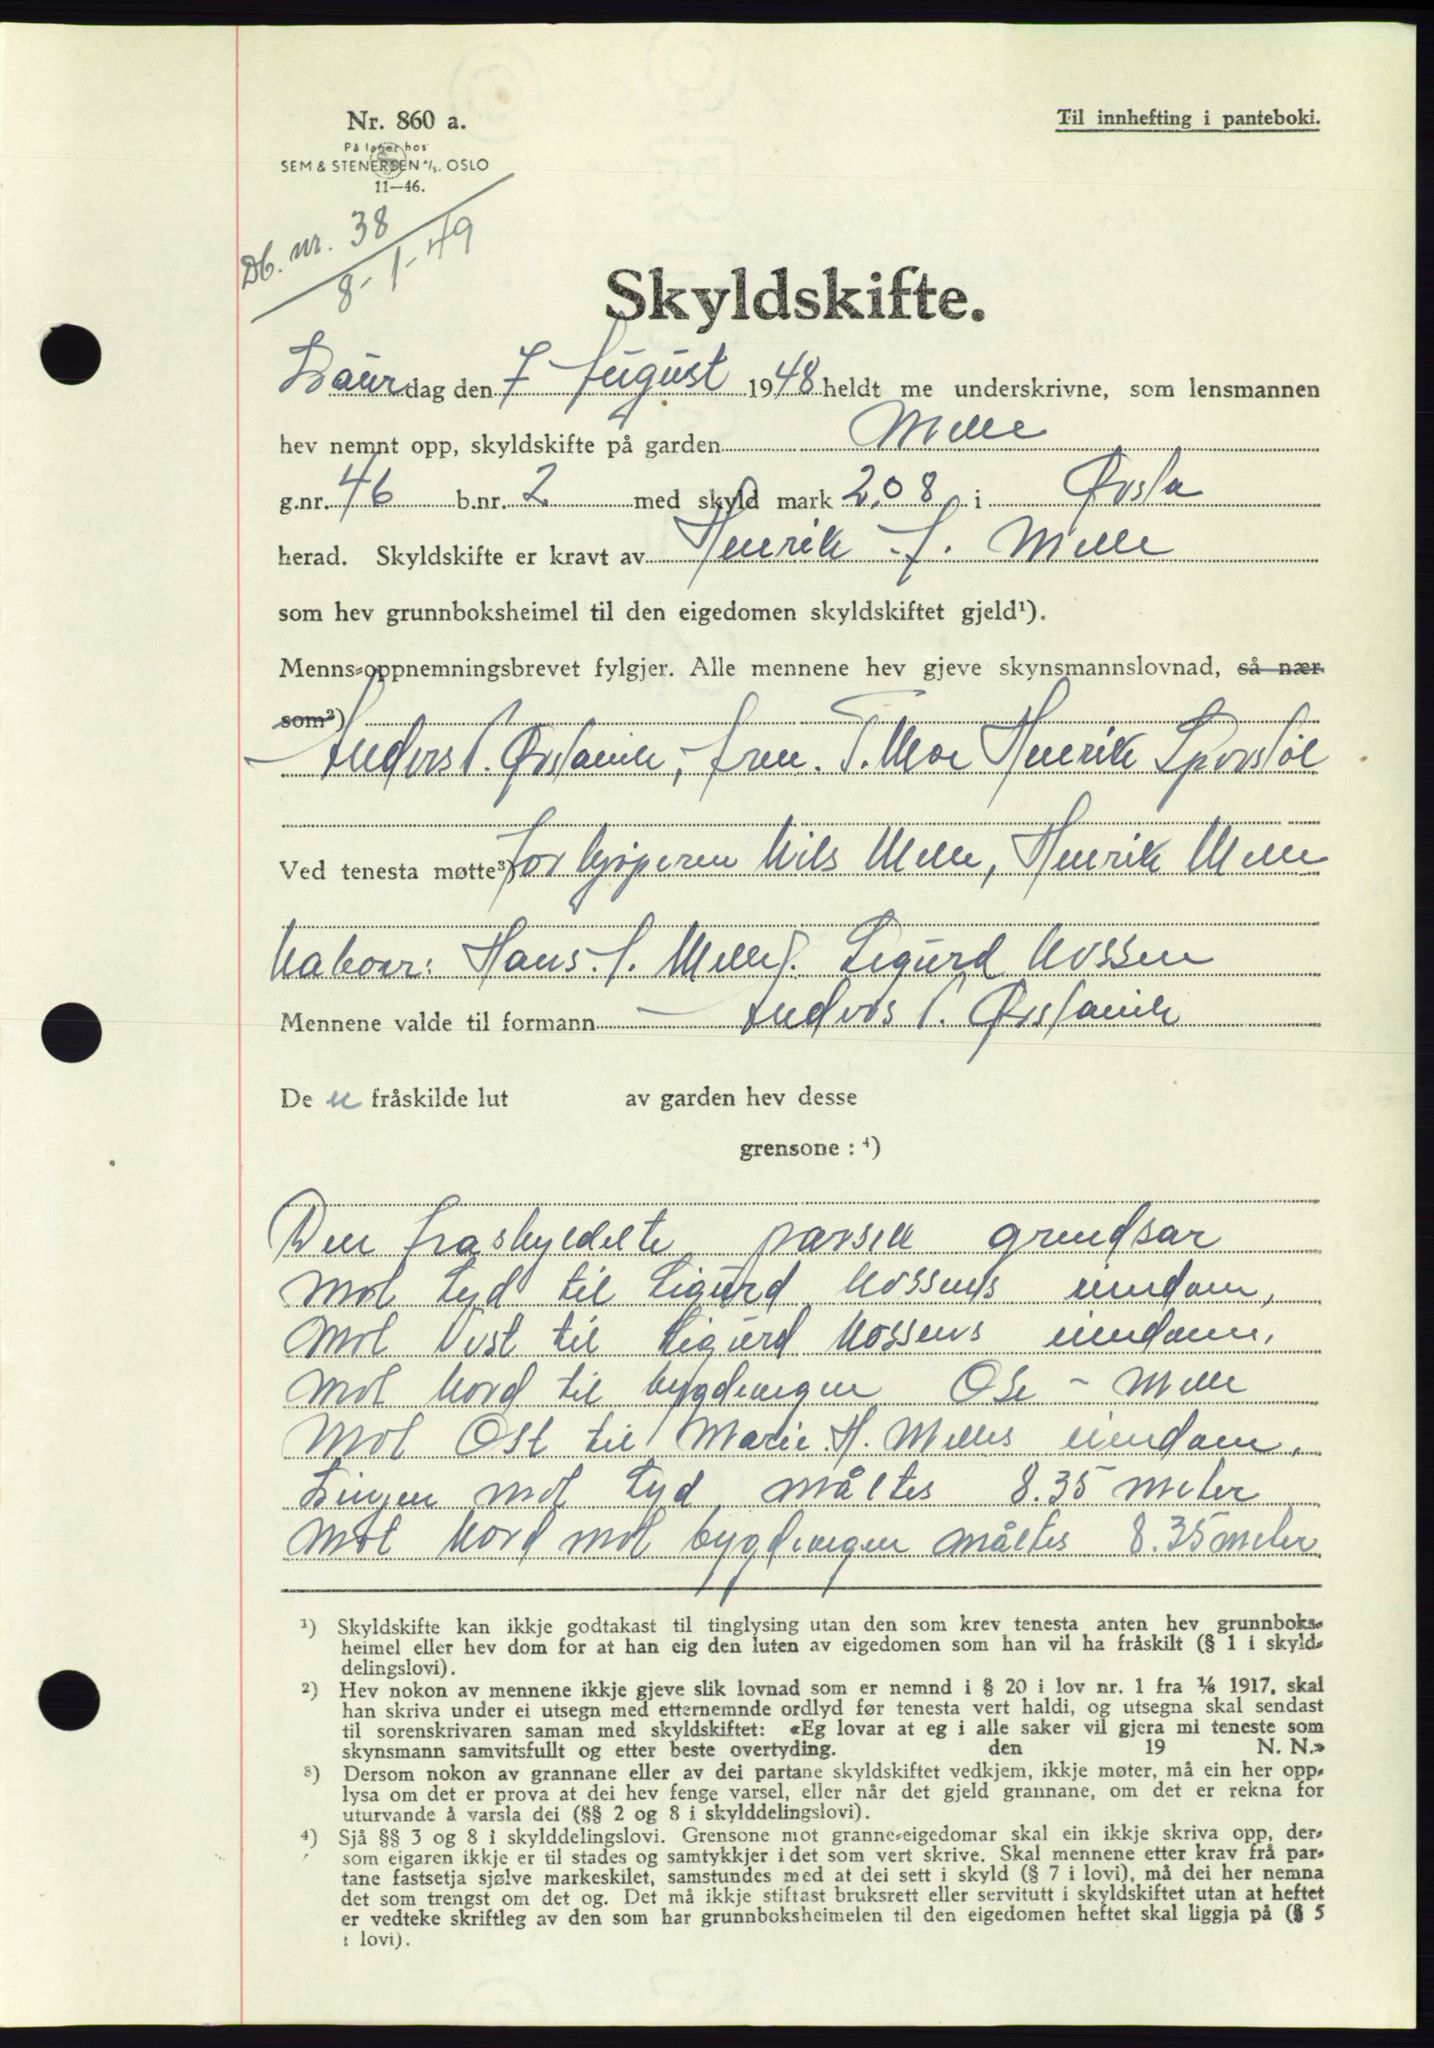 Nr. 860 a.
På lager hos
SEM & STENERSEN A/S. OSLO
11—46.
Til innhefting i panteboki.
Db. nr. 38
8-1-49
Skyldskifte.
Laurdag den 7 August 1948 heldt me underskrivne, som lensmannen
hev nemnt opp, skyldskifte på garden Melle
g.nr. 46 b.nr. 2 med skyld mark 2,08 i Ørsta
herad. Skyldskifte er kravt av Henrik A. Melle
som hev grunnboksheimel til den eigedomen skyldskiftet gjeld¹).
Menns-oppnemningsbrevet fylgjer. Alle mennene hev gjeve skynsmannslovnad, så nær
som²)
Anders P. Ørstavik, T. Moe Henrik Sporstøl
Ved tenesta møtte³) For kjøperen Nils Melle, Henrik Melle
Naboer: Hans. A. Melle. Sigurd Mossen
Mennene valde til formann Anders P. Ørstavik
De n fråskilde lut av garden hev desse
grensone : ⁴)
Den fraskyldete parsell grendsar
Mot Syd til Sigurd Mossens eiendom,
Mot Vest til Sigurd Mossens eiendom,
Mot Nord til bygdevegen Ose - Melle
Mot Øst til Marie H. Melles eiendom,
Linjen mot Syd måltes 8.35 meter
Mot Nord mot bygdevegen måltes 8.35 meter
¹) Skyldskifte kan ikkje godtakast til tinglysing utan den som krev tenesta anten hev grunnboks-
heimel eller hev dom for at han eig den luten av eigedomen som han vil ha fråskilt (§ 1 i skyld-
delingslovi).
²) Hev nokon av mennene ikkje gjeve slik lovnad som er nemnd i § 20 i lov nr. 1 fra ⅙ 1917, skal
han skriva under ei utsegn med etternemnde ordlyd før tenesta vert haldi, og utsegna skal sendast
til sorenskrivaren saman med skyldskiftet: «Eg lovar at eg i alle saker vil gjera mi teneste som
skynsmann samvitsfullt og etter beste overtyding. den 19 N. N.»
³) Dersom nokon av grannane eller av dei partane skyldskiftet vedkjem, ikkje møter, må ein her opp-
lysa om det er prova at dei hev fenge varsel, eller når det gjeld grannane, om det er rekna for
uturvande å varsla dei (§§ 2 og 8 i skylddelingslovi).
⁴) Sjå §§ 3 og 8 i skylddelingslovi. Grensone mot granne-eigedomar skal ein ikkje skriva opp, der-
som eigaren ikkje er til stades og samtykkjer i det som vert skrive. Skal mennene etter krav frå par-
tane fastsetja sjølve markeskilet, samstundes med at dei sett i skyld (§ 7 i lovi), må dei her nemna
det som trengst om det og. Det må ikkje stiftast bruksrett eller servitutt i skyldskiftet utan at heftet
er vedteke skriftleg av den som har grunnboksheimelen til den eigedomen heftet skal liggja på (§ 5
i lovi).